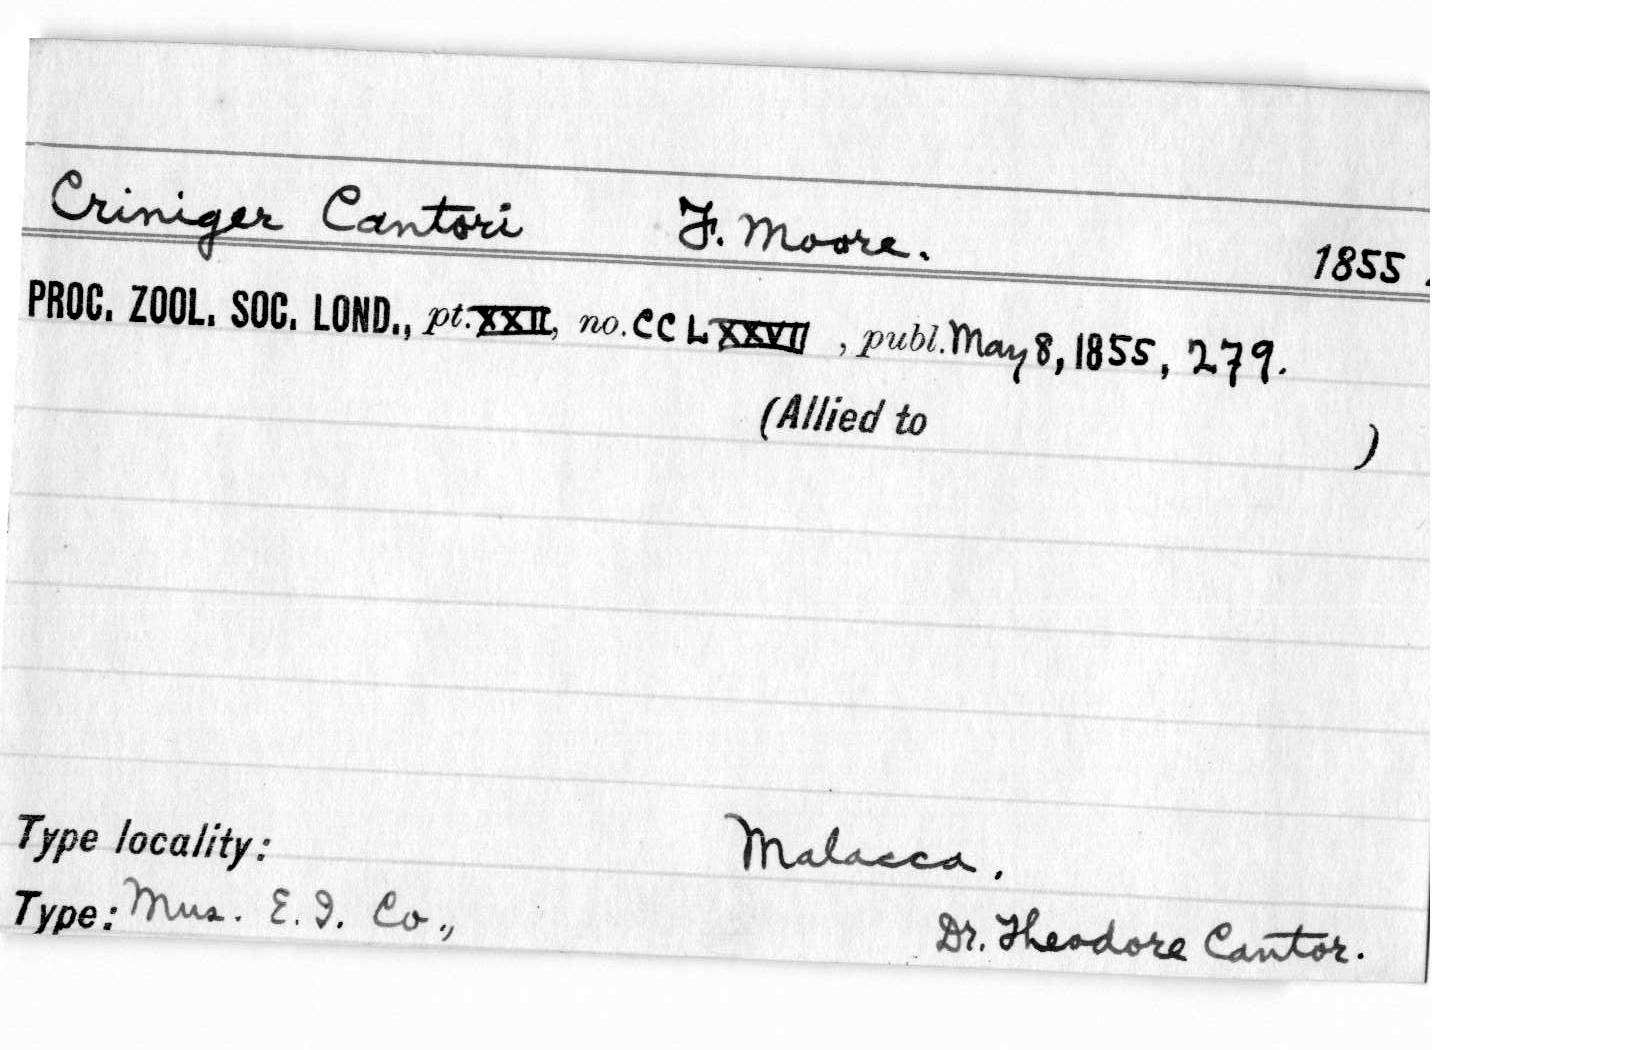 Criniger Cantori F. Moore. 1855.
PROC. ZOOL. SOC. LOND., pt. XXII, no. CCLXXVII, publ. May 8, 1855, 279.
(Allied to )
Type locality: Malacca.
Type: Mus. E. I. Co., Dr. Theodore Cantor.